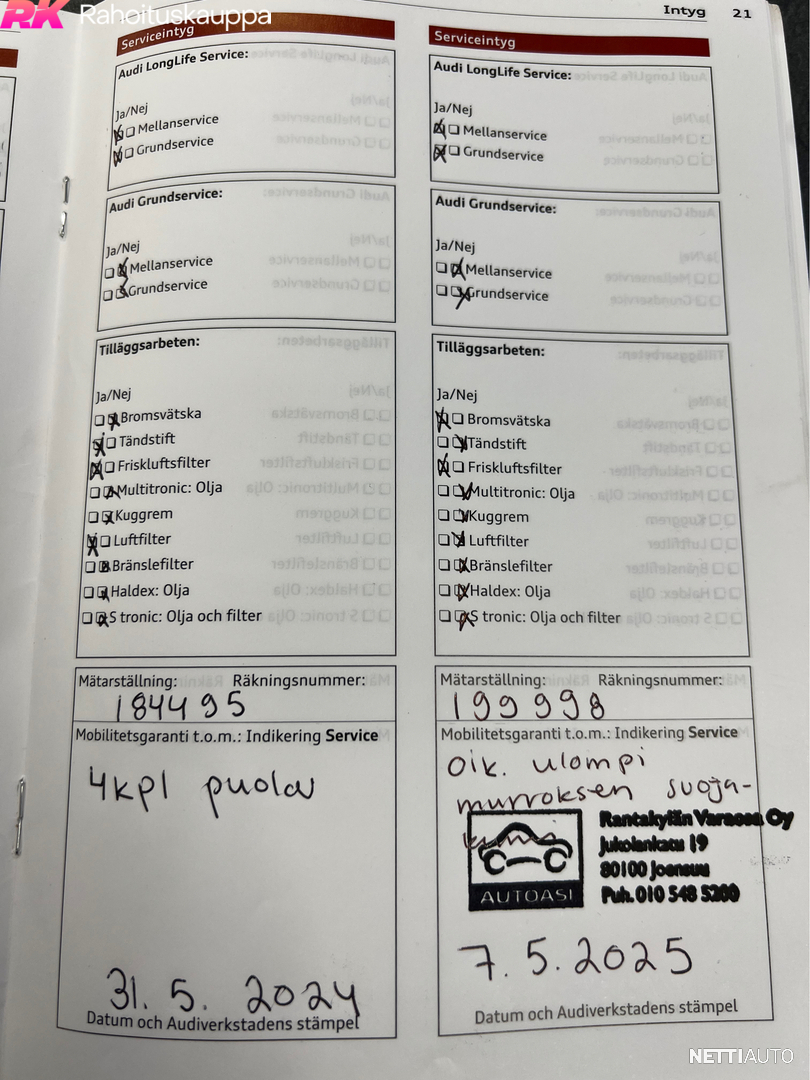 RK Rahoituskauppa
Intyg 21
Serviceintyg
Audi LongLife Service:
Ja/Nej
Mellanservice
Grundservice
Audi Grundservice:
Ja/Nej
Mellanservice
Grundservice
Tilläggsarbeten:
Ja/Nej
Bromsvätska
Tändstift
Friskluftsfilter
Multitronic: Olja
Kuggrem
Luftfilter
Bränslefilter
Haldex: Olja
S tronic: Olja och filter
Mätarställning: Räkningsnummer:
184495
Mobilitetsgaranti t.o.m.: Indikering Service
4kpl puolav
31. 5. 2024
Datum och Audiverkstadens stämpel
Serviceintyg
Audi LongLife Service:
Ja/Nej
Mellanservice
Grundservice
Audi Grundservice:
Ja/Nej
Mellanservice
Grundservice
Tilläggsarbeten:
Ja/Nej
Bromsvätska
Tändstift
Friskluftsfilter
Multitronic: Olja
Kuggrem
Luftfilter
Bränslefilter
Haldex: Olja
S tronic: Olja och filter
Mätarställning: Räkningsnummer:
199998
Mobilitetsgaranti t.o.m.: Indikering Service
Oik. ulompi
murroksen suoja-
kumi
Rantakylän Varaosa Oy
Jukolankatu 19
80100 Joensuu
Puh. 010 548 5200
AUTOASI
7. 5. 2025
Datum och Audiverkstadens stämpel
NETTIAUTO